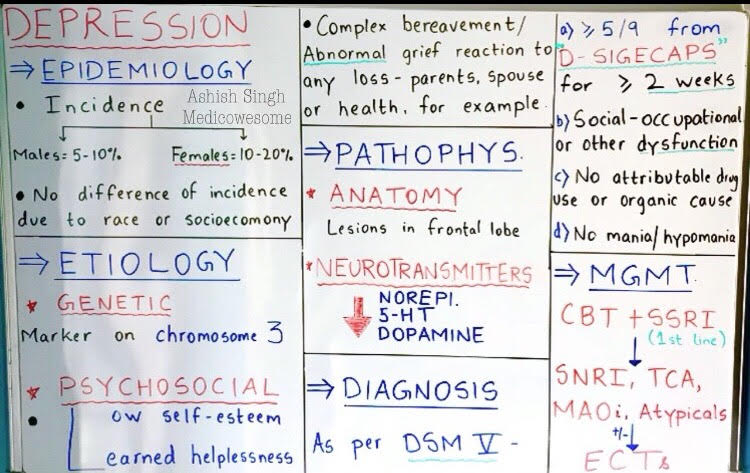 DEPRESSION
⇒ EPIDEMIOLOGY
• Incidence
Ashish Singh
Medicowesome
Males = 5-10%
Females = 10-20%
• No difference of incidence
due to race or socioecomony
⇒ ETIOLOGY
* GENETIC
Marker on chromosome 3
* PSYCHOSOCIAL
• Low self-esteem
Learned helplessness
• Complex bereavement/
Abnormal grief reaction to
any loss - parents, spouse
or health, for example.
⇒ PATHOPHYS.
* ANATOMY
Lesions in frontal lobe
* NEUROTRANSMITTERS
↓ NOREPI.
5-HT
DOPAMINE
⇒ DIAGNOSIS
As per DSM V -
a) ≥ 5/9 from
"D-SIGECAPS"
for ≥ 2 weeks
b) Social-occupational
or other dysfunction
c) No attributable drug
use or organic cause
d) No mania/hypomania
⇒ MGMT.
CBT + SSRI
(1st line)
↓
SNRI, TCA,
MAOi, Atypicals
+/- ↓
ECTs